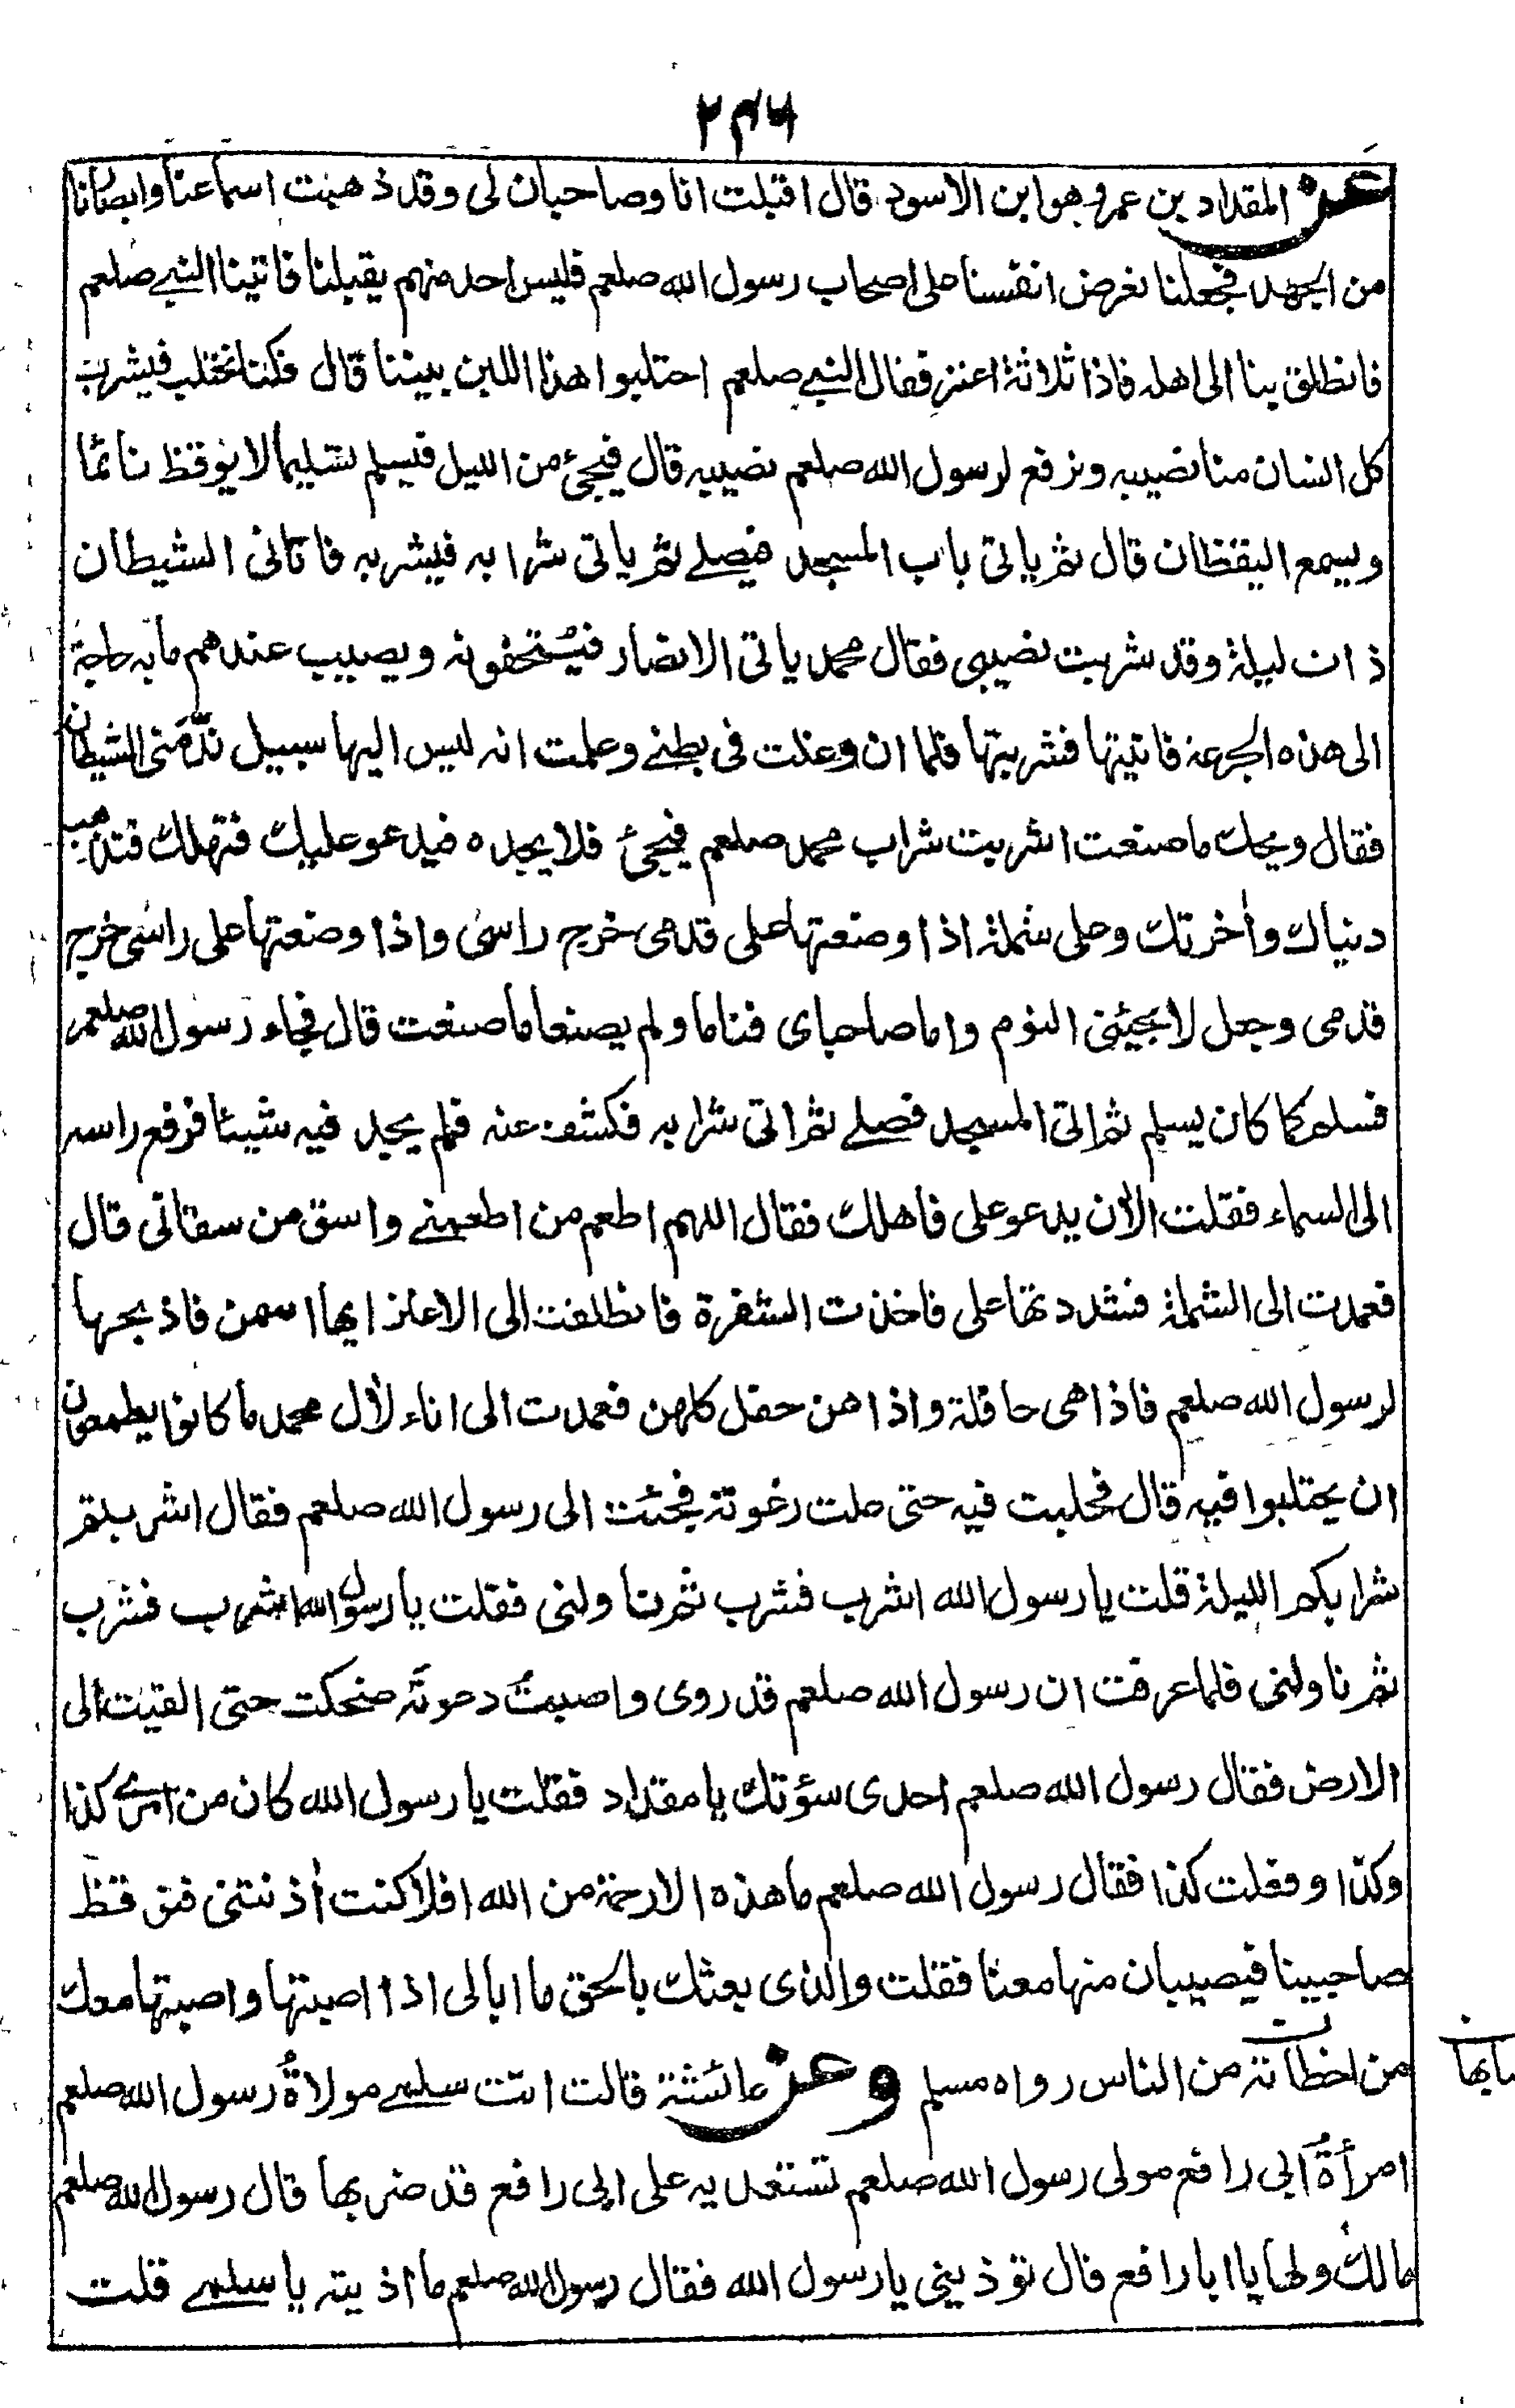 ۲۴۶
عن المقداد بن عمرو هو ابن الاسود قال اقبلت انا وصاحبان لى وقد ذهبت اسماعنا وابصارنا
من الجهد فجعلنا نعرض انفسنا على اصحاب رسول الله صلعم فليس احد منهم يقبلنا فاتينا النبے صلعم
فانطلق بنا الى اهله فاذا ثلاثة اعنز فقال النبے صلعم احتلبوا هذا اللبن بيننا قال فكنا نحتلب فيشرب
كل انسان منا نصيبه ونرفع لرسول الله صلعم نصيبه قال فيجئ من الليل فيسلم تسليما لا يوقظ نائما
ويسمع اليقظان قال ثم ياتى باب المسجد فيصلے ثم ياتى شرابه فيشربه فاتانى الشيطان
ذات ليلة وقد شربت نصيبى فقال محمد ياتى الانصار فيتحفونه ويصيب عندهم مابه حاجة
الى هذه الجرعة فاتيتها فشربتها فلما ان وغلت فى بطنے وعلمت انه ليس اليها سبيل ندّمنى الشيطان
فقال ويحك ما صنعت اشربت شراب محمد صلعم فيجئ فلا يجده فيدعو عليك فتهلك فتذهب
دنياك واٰخرتك وعلى شملة اذا وضعتها على قدمى خرج راسى واذا وضعتها على راسى خرج
قدمى وجعل لا يجيئنى النوم واما صاحباى فناما ولم يصنعا ما صنعت قال فجاء رسول الله صلعم
فسلم كما كان يسلم ثم اتى المسجد فصلے ثم اتى شرابه فكشف عنه فلم يجد فيه شيئا فرفع راسه
الى السماء فقلت الاٰن يدعو على فاهلك فقال اللهم اطعم من اطعمنے واسق من سقانى قال
فعمدت الى الشملة فشددتها على فاخذت الشفرة فانطلقت الى الاعنز ايها اسمن فاذبحها
لرسول الله صلعم فاذا هى حافلة واذا هن حفل كلهن فعمدت الى اناء لاٰل محمد ما كانوا يطمعون
ان يحتلبوا فيه قال فحلبت فيه حتى علت رغوته فجئت الى رسول الله صلعم فقال اشربتم
شرابكم الليلة قلت يا رسول الله اشرب فشرب ثم ناولنى فقلت يا رسول الله اشرب فشرب
ثم ناولنى فلما عرفت ان رسول الله صلعم قد روى واصبت دعوته ضحكت حتى القيت الى
الارض فقال رسول الله صلعم احدى سؤتك يا مقداد فقلت يا رسول الله كان من امرے كذا
وكذا وفعلت كذا فقال رسول الله صلعم ما هذه الا رحمة من الله افلا كنت اٰذنتنى فنوقظ
صاحبينا فيصيبان منها معنا فقلت والذى بعثك بالحق ما ابالى اذا اصبتها واصبتها معك
من اخطأته من الناس رواه مسلم وعن عائشة قالت اتت سلمے مولاة رسول الله صلعم
امرأة ابى رافع مولى رسول الله صلعم تستعديه على ابى رافع قد ضربها قال رسول الله صلعم
مالك ولها يا ابا رافع قال تؤذينى يا رسول الله فقال رسول الله صلعم ما اذيته يا سلمے قلت